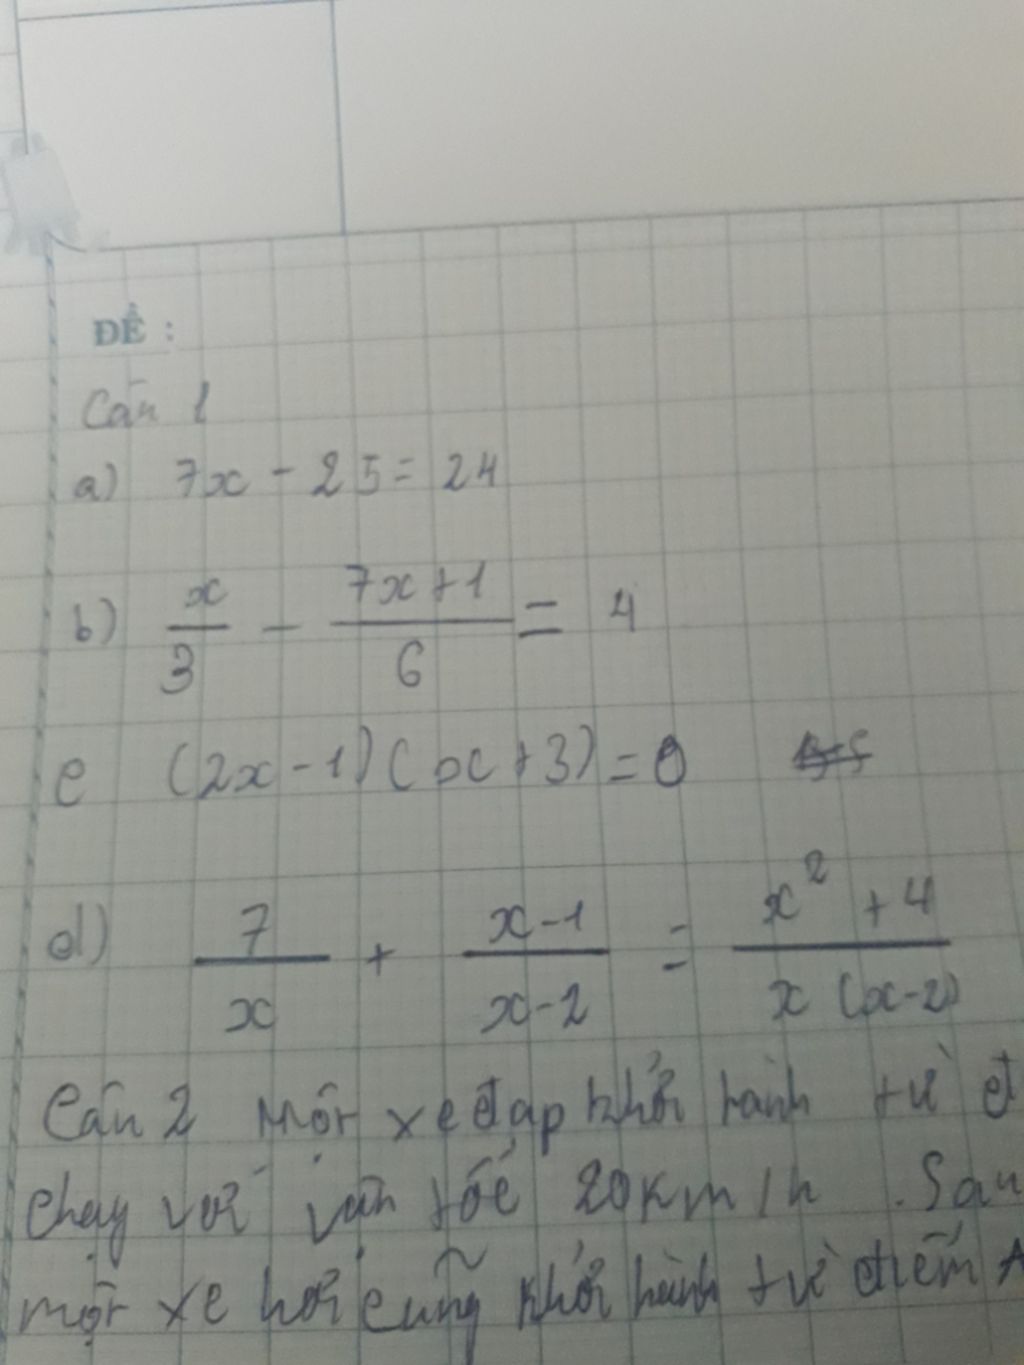 ĐỀ :
Câu 1
a) 7x - 25 = 24
b) x/3 - (7x+1)/6 = 4
c (2x-1)(x+3) = 0
d) 7/x + (x-1)/(x-2) = (x² + 4)/(x (x-2))
Câu 2 Một xe đạp khởi hành từ đ
chạy với vận tốc 20km/h . Sau
một xe hơi cũng khởi hành từ điểm A